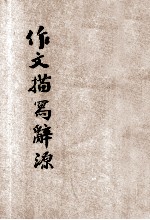 作文描写辭源